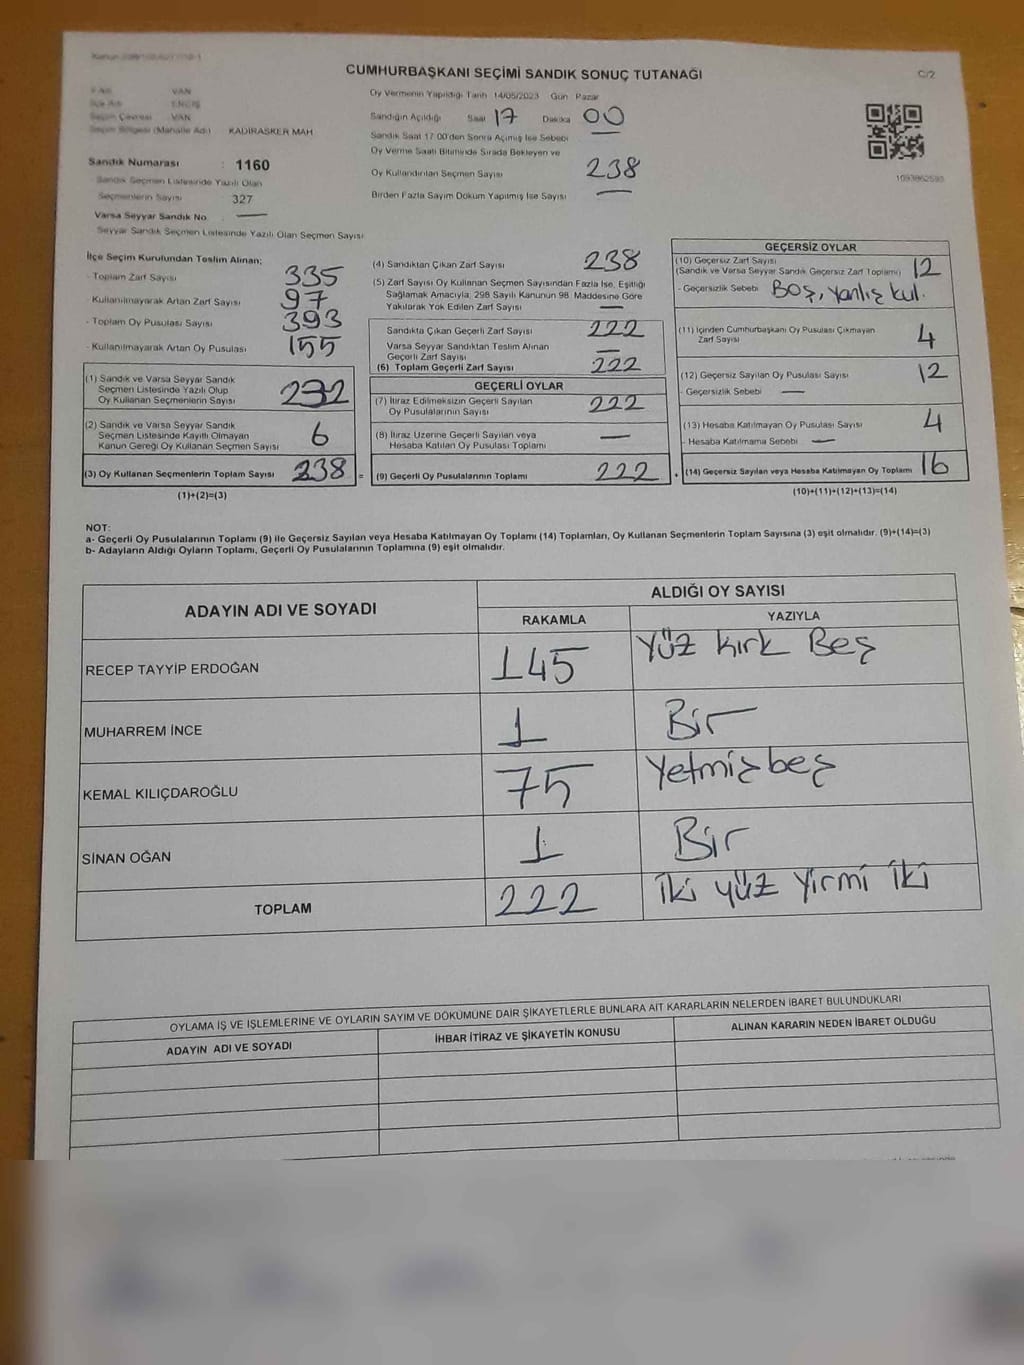 CUMHURBAŞKANI SEÇİMİ SANDIK SONUÇ TUTANAĞI
C/2
VAN
VAN
Seçim Bölgesi (Mahalle Adı) KADIRASKER MAH
Sandık Numarası : 1160
Sandık Seçmen Listesinde Yazılı Olan
Seçmenlerin Sayısı 327
Varsa Seyyar Sandık No
Seyyar Sandık Seçmen Listesinde Yazılı Olan Seçmen Sayısı
Oy Vermenin Yapıldığı Tarih 14/05/2023 Gün Pazar
Sandığın Açıldığı Saat 17 Dakika 00
Sandık Saat 17.00'den Sonra Açımış İse Sebebi —
Oy Verme Saati Bitiminde Sırada Bekleyen ve
Oy Kullandırılan Seçmen Sayısı 238
Birden Fazla Sayım Döküm Yapılmış İse Sayısı —
1093862593
İlçe Seçim Kurulundan Teslim Alınan;
- Toplam Zarf Sayısı 335
- Kullanılmayarak Artan Zarf Sayısı 97
- Toplam Oy Pusulası Sayısı 393
- Kullanılmayarak Artan Oy Pusulası 155
(1) Sandık ve Varsa Seyyar Sandık
Seçmen Listesinde Yazılı Olup
Oy Kullanan Seçmenlerin Sayısı 232
(2) Sandık ve Varsa Seyyar Sandık
Seçmen Listesinde Kayıtlı Olmayan
Kanun Gereği Oy Kullanan Seçmen Sayısı 6
(3) Oy Kullanan Seçmenlerin Toplam Sayısı 238 =
(1)+(2)=(3)
(4) Sandıktan Çıkan Zarf Sayısı 238
(5) Zarf Sayısı Oy Kullanan Seçmen Sayısından Fazla İse, Eşitliği
Sağlamak Amacıyla, 298 Sayılı Kanunun 98. Maddesine Göre
Yakılarak Yok Edilen Zarf Sayısı —
Sandıkta Çıkan Geçerli Zarf Sayısı 222
Varsa Seyyar Sandıktan Teslim Alınan
Geçerli Zarf Sayısı —
(6) Toplam Geçerli Zarf Sayısı 222
GEÇERLİ OYLAR
(7) İtiraz Edilmeksizin Geçerli Sayılan
Oy Pusulalarının Sayısı 222
(8) İtiraz Üzerine Geçerli Sayılan veya
Hesaba Katılan Oy Pusulası Toplamı —
(9) Geçerli Oy Pusulalarının Toplamı 222 +
GEÇERSİZ OYLAR
(10) Geçersiz Zarf Sayısı
(Sandık ve Varsa Seyyar Sandık Geçersiz Zarf Toplamı) 12
- Geçersizlik Sebebi Boş, yanlış kul.
(11) İçinden Cumhurbaşkanı Oy Pusulası Çıkmayan
Zarf Sayısı 4
(12) Geçersiz Sayılan Oy Pusulası Sayısı 12
- Geçersizlik Sebebi —
(13) Hesaba Katılmayan Oy Pusulası Sayısı 4
- Hesaba Katılmama Sebebi —
(14) Geçersiz Sayılan veya Hesaba Katılmayan Oy Toplamı 16
(10)+(11)+(12)+(13)=(14)
NOT:
a- Geçerli Oy Pusulalarının Toplamı (9) ile Geçersiz Sayılan veya Hesaba Katılmayan Oy Toplamı (14) Toplamları, Oy Kullanan Seçmenlerin Toplam Sayısına (3) eşit olmalıdır. (9)+(14)=(3)
b- Adayların Aldığı Oyların Toplamı, Geçerli Oy Pusulalarının Toplamına (9) eşit olmalıdır.
ADAYIN ADI VE SOYADI
ALDIĞI OY SAYISI
RAKAMLA YAZIYLA
RECEP TAYYİP ERDOĞAN 145 Yüz kırk Beş
MUHARREM İNCE 1 Bir
KEMAL KILIÇDAROĞLU 75 Yetmişbeş
SİNAN OĞAN 1 Bir
TOPLAM 222 İki yüz Yirmi iki
OYLAMA İŞ VE İŞLEMLERİNE VE OYLARIN SAYIM VE DÖKÜMÜNE DAİR ŞİKAYETLERLE BUNLARA AİT KARARLARIN NELERDEN İBARET BULUNDUKLARI
ADAYIN ADI VE SOYADI İHBAR İTİRAZ VE ŞİKAYETİN KONUSU ALINAN KARARIN NEDEN İBARET OLDUĞU